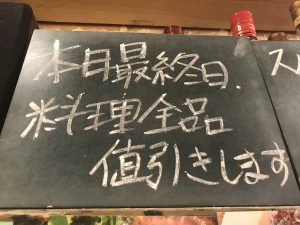 本日最終日.
料理全品
値引きします
ス